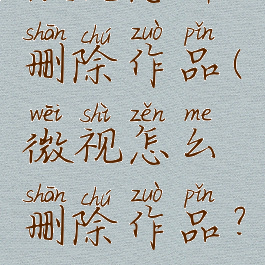 shān chú zuò pǐn
删除作品(
wēi shì zěn me
微视怎么
shān chú zuò pǐn
删除作品?